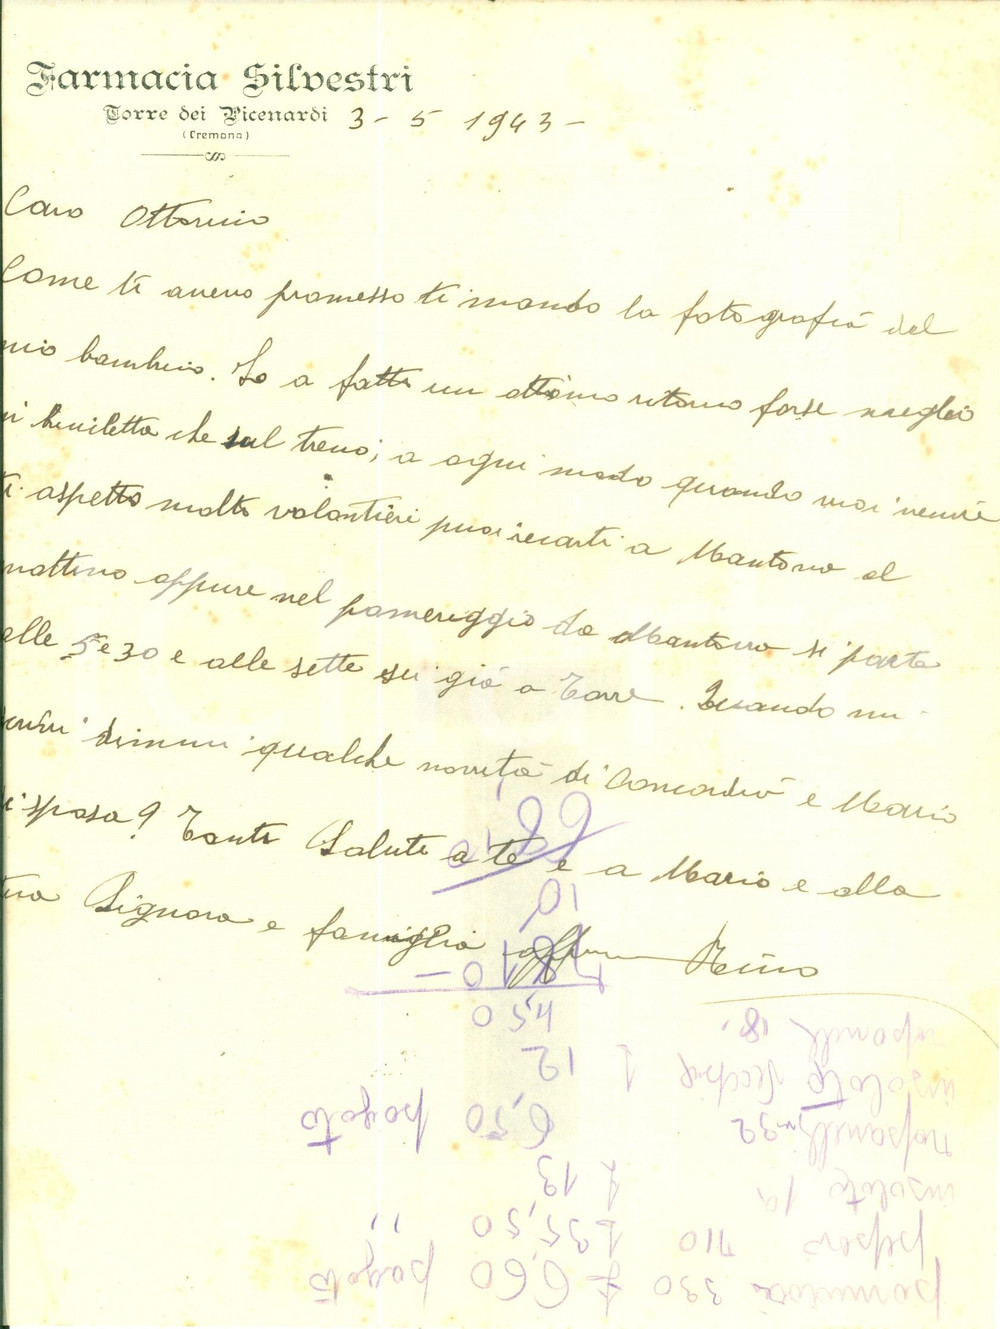 Farmacia Silvestri
Torre dei Picenardi 3 - 5 1943 -
(Cremona)
Caro Ottorino
Come ti avevo promesso ti mando la fotografia del
mio bambino. Io o fatto un ottimo ritorno forse meglio
in bicicletta che sul treno; a ogni modo quando vuoi venire
ti aspetto molto volontieri puoi recarti a Mantova al
mattino oppure nel pomeriggio da Mantova si parte
alle 5 e 30 e alle sette sei già a Torre. Quando mi
scrivi dimmi qualche novità di Concordia e Mario
si sposa? Tanti Saluti a te e a Mario e alla
tua Signora e famiglia aff Nino
pomidoro 330 £ 6,60 pagato
pepero 710 £ 35,50 "
insalata £ 13
n. 32 6,50 pagato
insalata 1 12
18, 4,50
10,
68,10